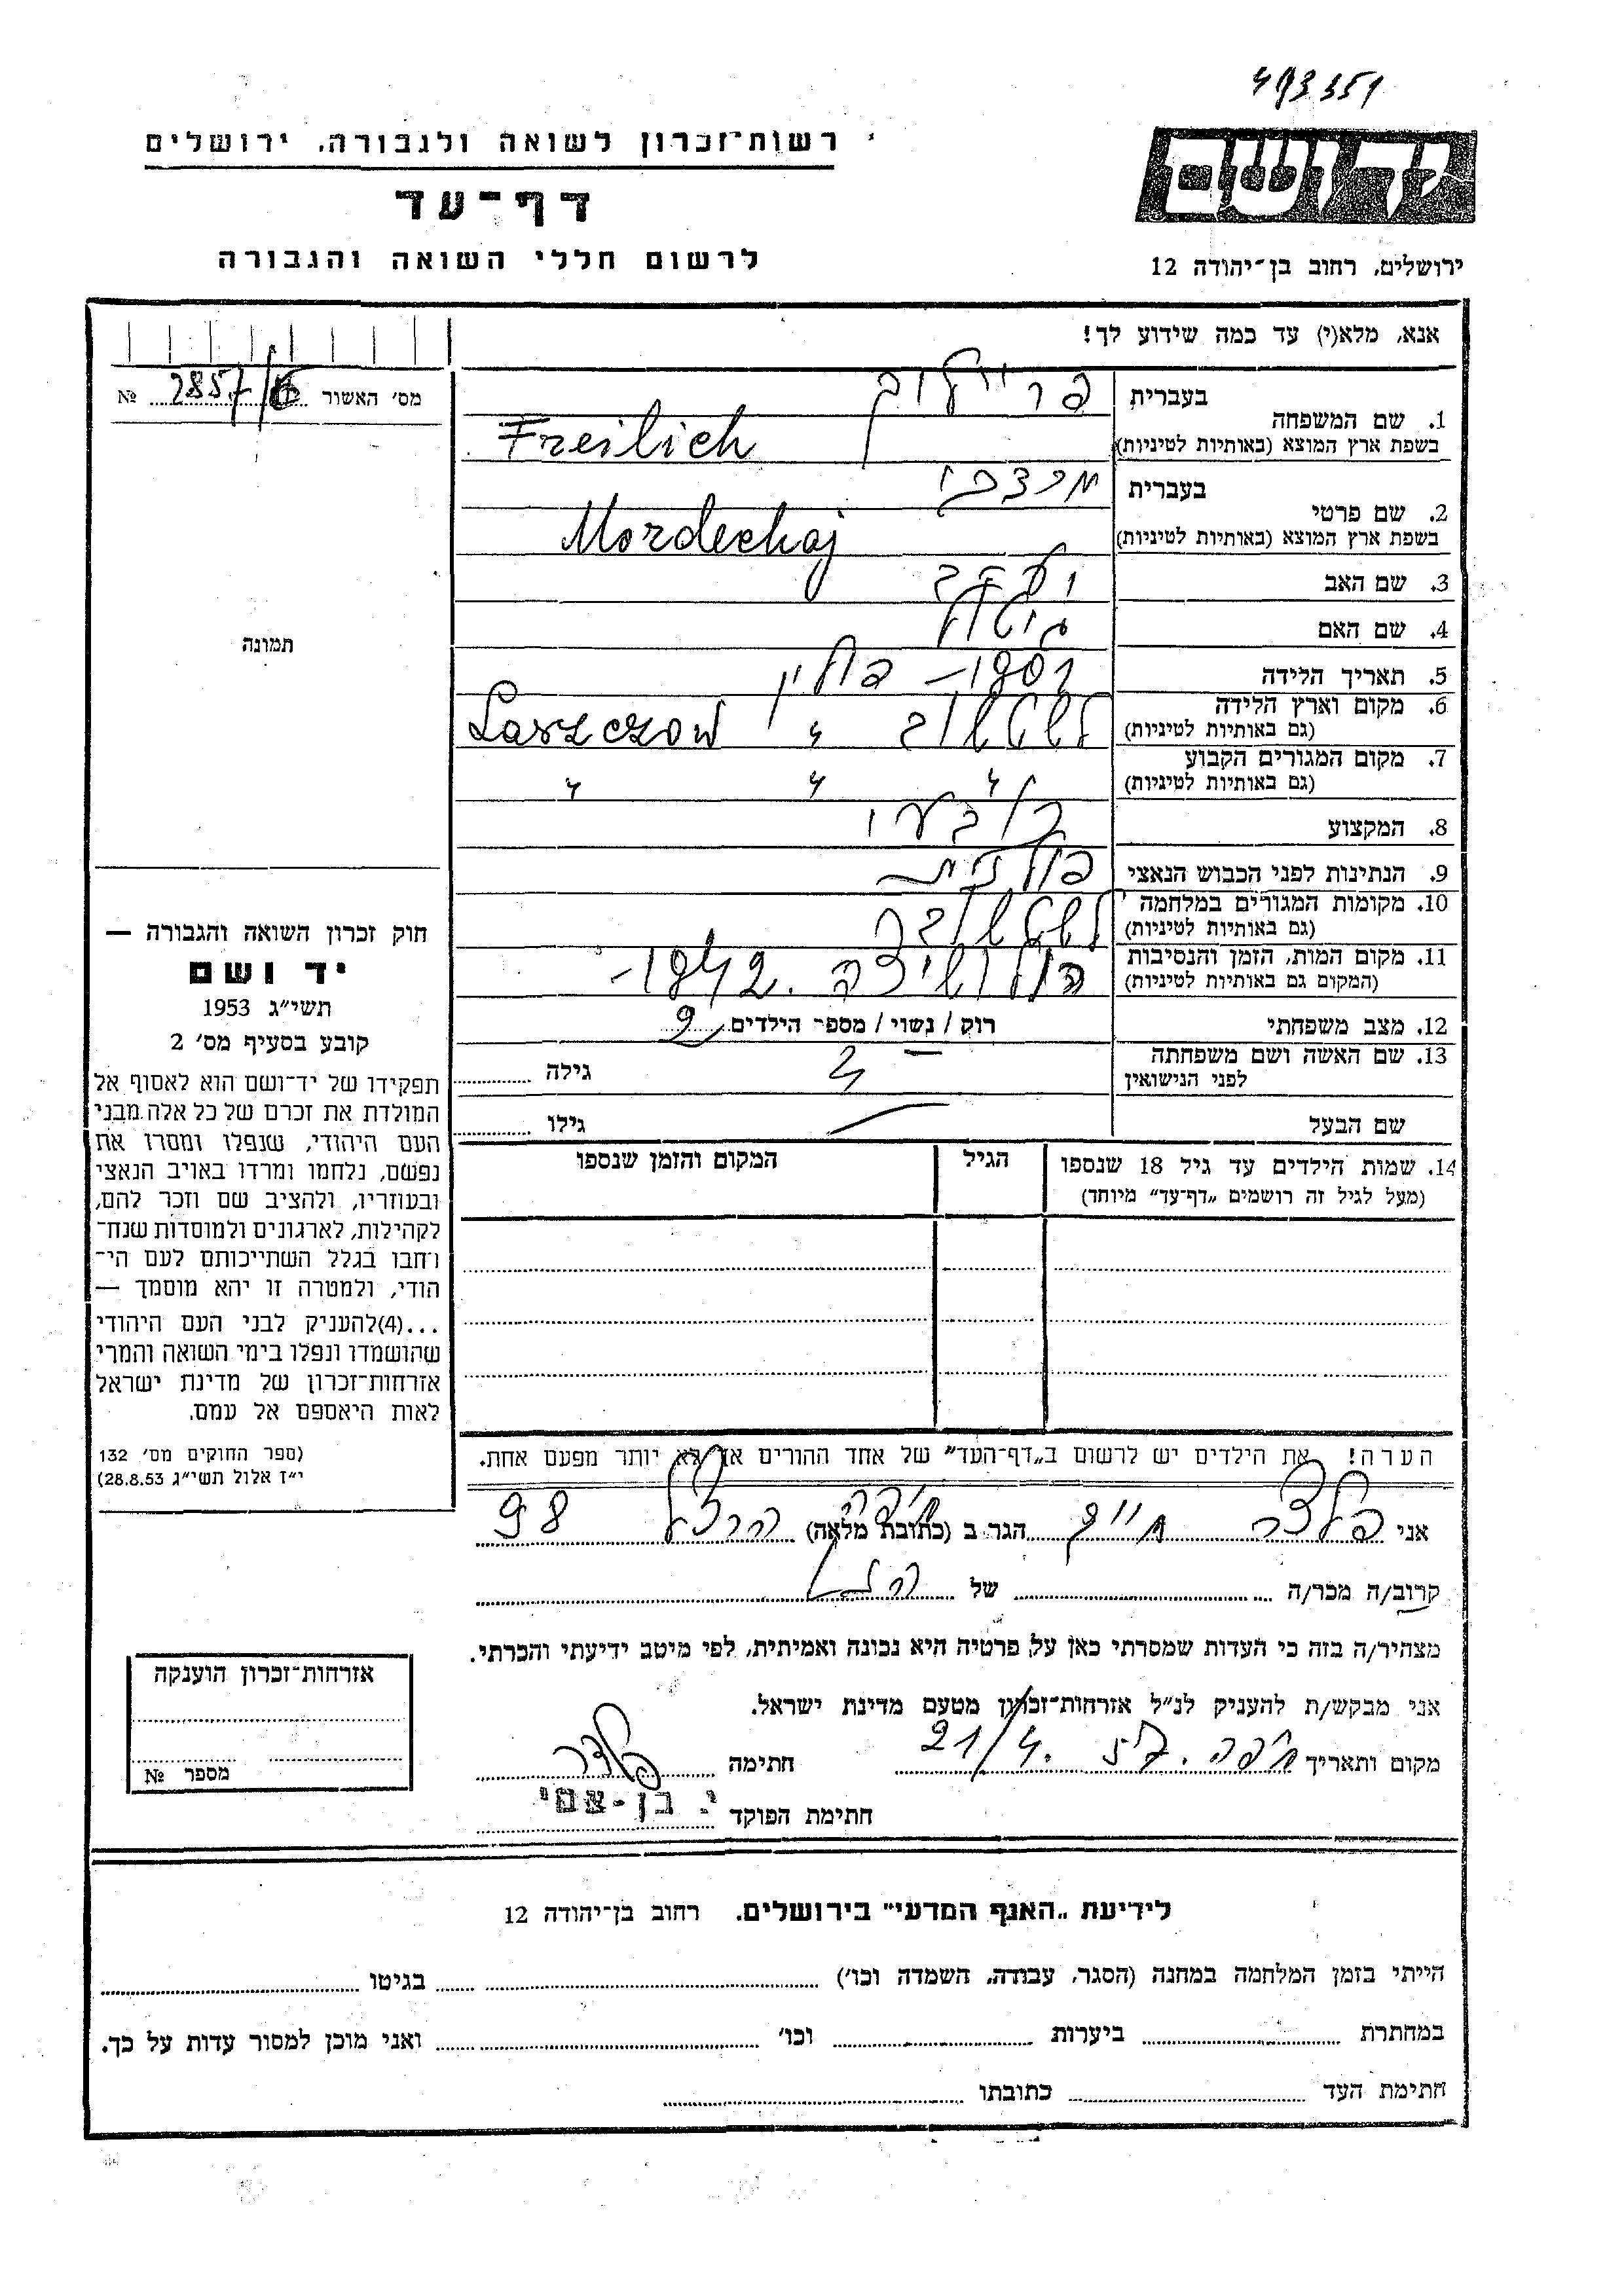 493351
רשות־זכרון לשואה ולגבורה, ירושלים
דף־עד
לרשום חללי השואה והגבורה
יד ושם
ירושלים, רחוב בן־יהודה 12
אנא, מלא(י) עד כמה שידוע לך!
מס׳ האשור 2857/ №
תמונה
חוק זכרון השואה והגבורה —
יד ושם
תשי״ג 1953
קובע בסעיף מס׳ 2
תפקידו של יד־ושם הוא לאסוף אל
המולדת את זכרם של כל אלה מבני
העם היהודי, שנפלו ומסרו את
נפשם, נלחמו ומרדו באויב הנאצי
ובעוזריו, ולהציב שם וזכר להם,
לקהילות, לארגונים ולמוסדות שנח־
רחבו בגלל השתייכותם לעם הי־
הודי, ולמטרה זו יהא מוסמך —
...(4)להעניק לבני העם היהודי
שהושמדו ונפלו בימי השואה והמרי
אזרחות־זכרון של מדינת ישראל
לאות היאספם אל עמם.
(ספר החוקים מס׳ 132
י״ז אלול תשי״ג 28.8.53)
1. שם המשפחה
בעברית פריילוך
בשפת ארץ המוצא (באותיות לטיניות) Freilich
2. שם פרטי
בעברית מרדכי
בשפת ארץ המוצא (באותיות לטיניות) Mordechaj
3. שם האב
4. שם האם
5. תאריך הלידה פולין
6. מקום וארץ הלידה
(גם באותיות לטיניות) לשטשוב " Laszczow
7. מקום המגורים הקבוע
(גם באותיות לטיניות) " " "
8. המקצוע
9. הנתינות לפני הכבוש הנאצי פולנית
10. מקומות המגורים במלחמה
(גם באותיות לטיניות) לשטשוב
11. מקום המות, הזמן והנסיבות
(המקום גם באותיות לטיניות) 1942.
12. מצב משפחתי רוק / נשוי / מספר הילדים
13. שם האשה ושם משפחתה
לפני הנישואין גילה
שם הבעל גילו
14. שמות הילדים עד גיל 18 שנספו
(מעל לגיל זה רושמים „דף־עד״ מיוחד)
הגיל
המקום והזמן שנספו
הערה! את הילדים יש לרשום ב„דף־העד״ של אחד ההורים אך לא יותר מפעם אחת.
אני חיים הגר ב (כתובת מלאה) חיפה הרצל 98
קרוב/ה מכר/ה של
מצהיר/ה בזה כי העדות שמסרתי כאן על פרטיה היא נכונה ואמיתית, לפי מיטב ידיעתי והכרתי.
אני מבקש/ת להעניק לנ״ל אזרחות־זכרון מטעם מדינת ישראל.
מקום ותאריך חיפה 21/4. חתימה
חתימת הפוקד י. בן-עמי
אזרחות־זכרון הוענקה
מספר №
לידיעת „האנף המדעי״ בירושלים. רחוב בן־יהודה 12
הייתי בזמן המלחמה במחנה (הסגר, עבודה, השמדה וכו׳) בגיטו
במחתרת ביערות וכו׳ ואני מוכן למסור עדות על כך.
חתימת העד כתובתו